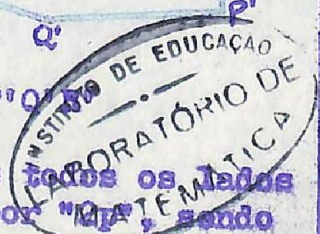 Q' P'
INSTITUTO DE EDUCAÇÃO
LABORATÓRIO DE
MATEMÁTICA
todos os lados
or "mp", sendo